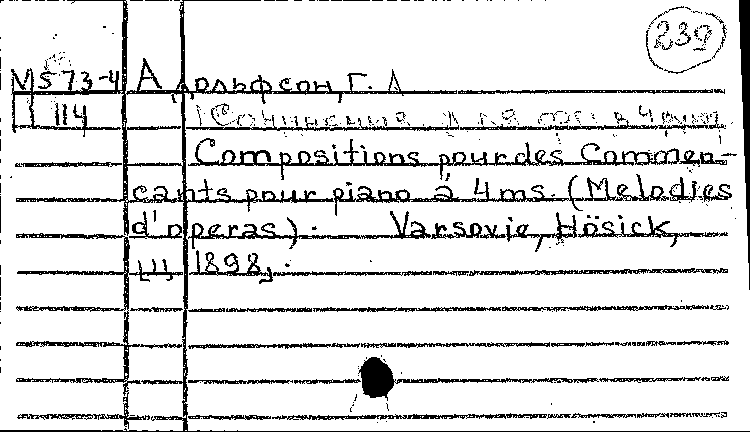 239
М 573-4 Адольфсон, Г. А
П 114 [Сочинения для ф-п. в 4 руки]
Compositions pour des Commen-
cants pour piano à 4 ms. (Melodies
d'operas). Varsovie, Hösick,
1898,.